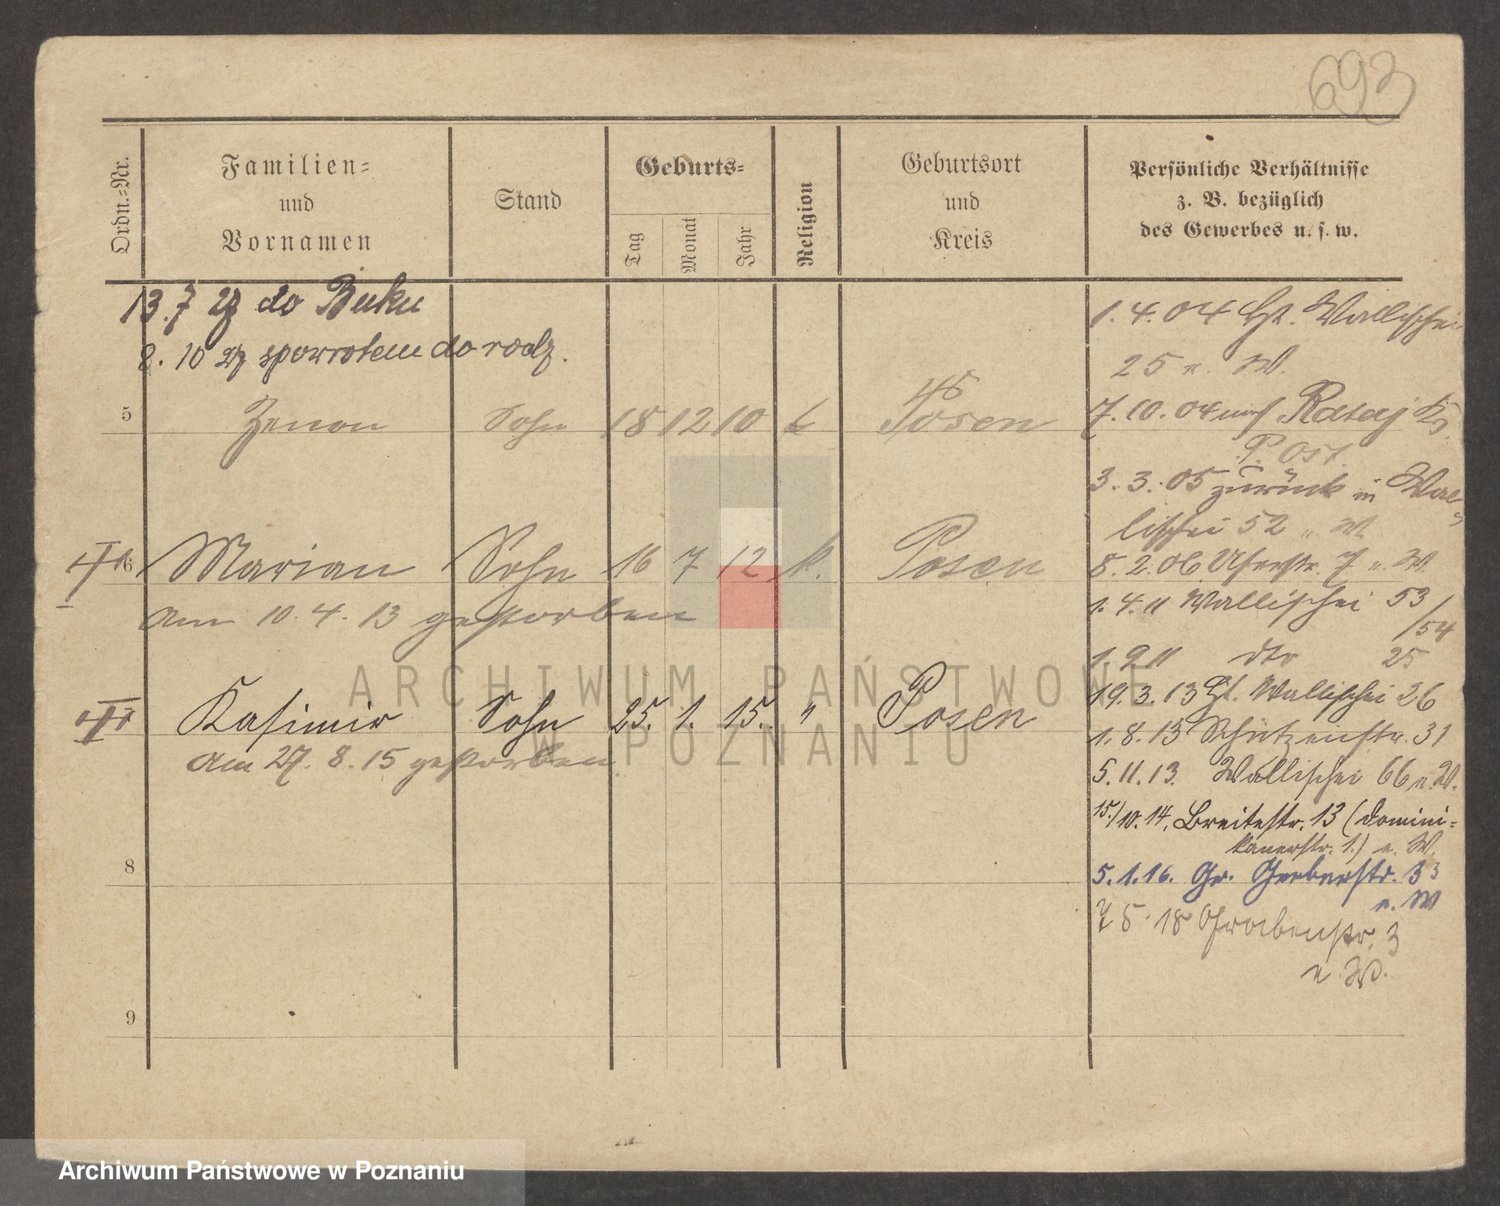 693
Ordn.-Nr.
Familien-
und
Vornamen
Stand
Geburts-
Tag
Monat
Jahr
Religion
Geburtsort
und
Kreis
Persönliche Verhältnisse
z. B. bezüglich
des Gewerbes u. s. w.
13.7 27 do Buku
8.10 27 spowrotem do rodz.
5 Zenon Sohn 18 12 10 k Posen
6 Marian Sohn 16 7 12 k. Posen
am 10.4.13 gestorben
Kasimir Sohn 25. 1. 15. " Posen
am 27.8.15 gestorben
8
9
1.4.04 Wallischei
25 u. W.
7.10.04 auf Rataj Kr.
P. Ost.
3.3.05 zurück in Wal-
lischei 52 u. W.
8.2.06 Uferstr. 7 u. W.
1.4.11 Wallischei 53
/54
1.9 11 dto 25
19.3.13 Wallischei 26
1.8.13 Schützenstr. 31
5.11.13. Wallischei 66 u. W.
15./10.14. Breitestr. 13 (Domini-
kanerstr. 1.) u. W.
5.1.16. Gr. Gerberstr. 33
u. W
7 5 18 Grabenstr. 3
u. W.
ARCHIWUM PAŃSTWOWE
W POZNANIU
Archiwum Państwowe w Poznaniu